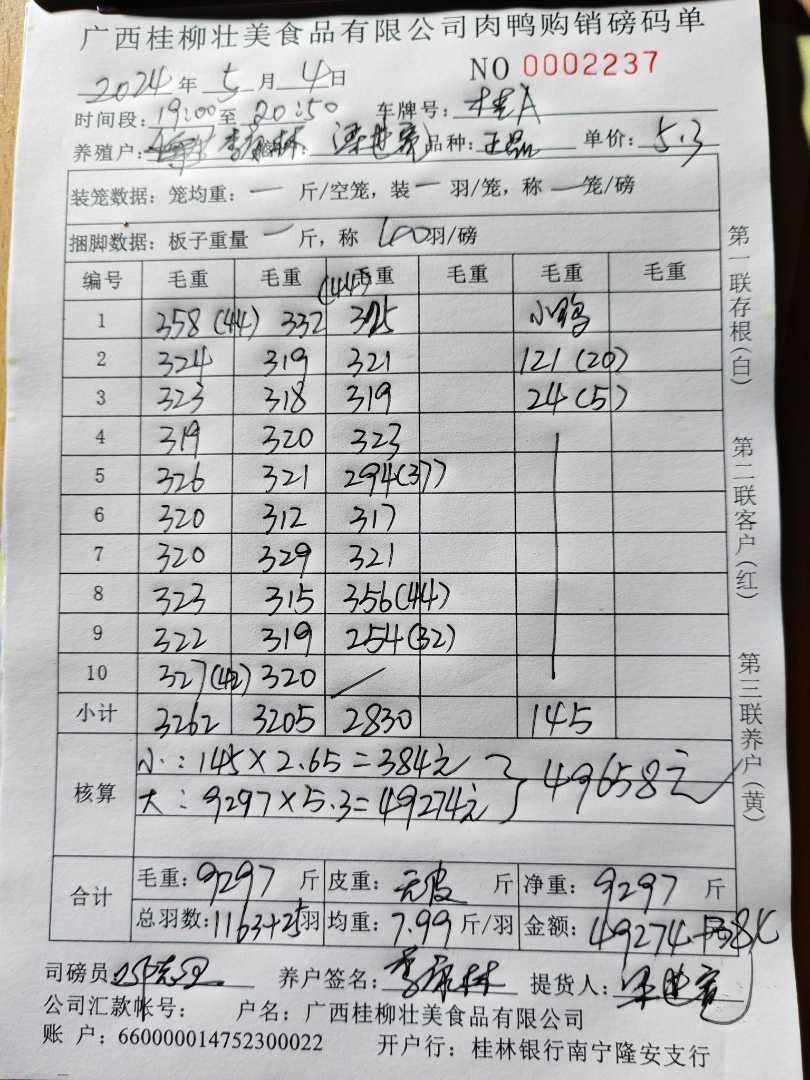 广西桂柳壮美食品有限公司肉鸭购销磅码单
2024年5月4日 NO 0002237
时间段:19:00至20:50 车牌号:桂A
养殖户: 李 林 品种:正品 单价:5.3
装笼数据:笼均重:一斤/空笼,装一羽/笼,称一笼/磅
捆脚数据:板子重量一斤,称 羽/磅
编号 毛重 毛重 毛重 毛重 毛重 毛重
(44)
1 358(44) 332 325 小鸭
2 324 319 321 121(20)
3 323 318 319 24(5)
4 319 320 323
5 326 321 294(37)
6 320 312 317
7 320 329 321
8 323 315 356(44)
9 322 319 254(32)
10 327(42) 320
小计 3262 3205 2830 145
核算 小:145×2.65=384元
大:9297×5.3=49274元
49658元
合计 毛重:9297斤 皮重:无皮斤 净重:9297斤
总羽数:1163+25羽 均重:7.99斤/羽 金额:49274+384
司磅员 养户签名:李 林 提货人:
公司汇款帐号: 户名:广西桂柳壮美食品有限公司
账 户:660000014752300022 开户行:桂林银行南宁隆安支行
第一联存根(白)
第二联客户(红)
第三联养户(黄)